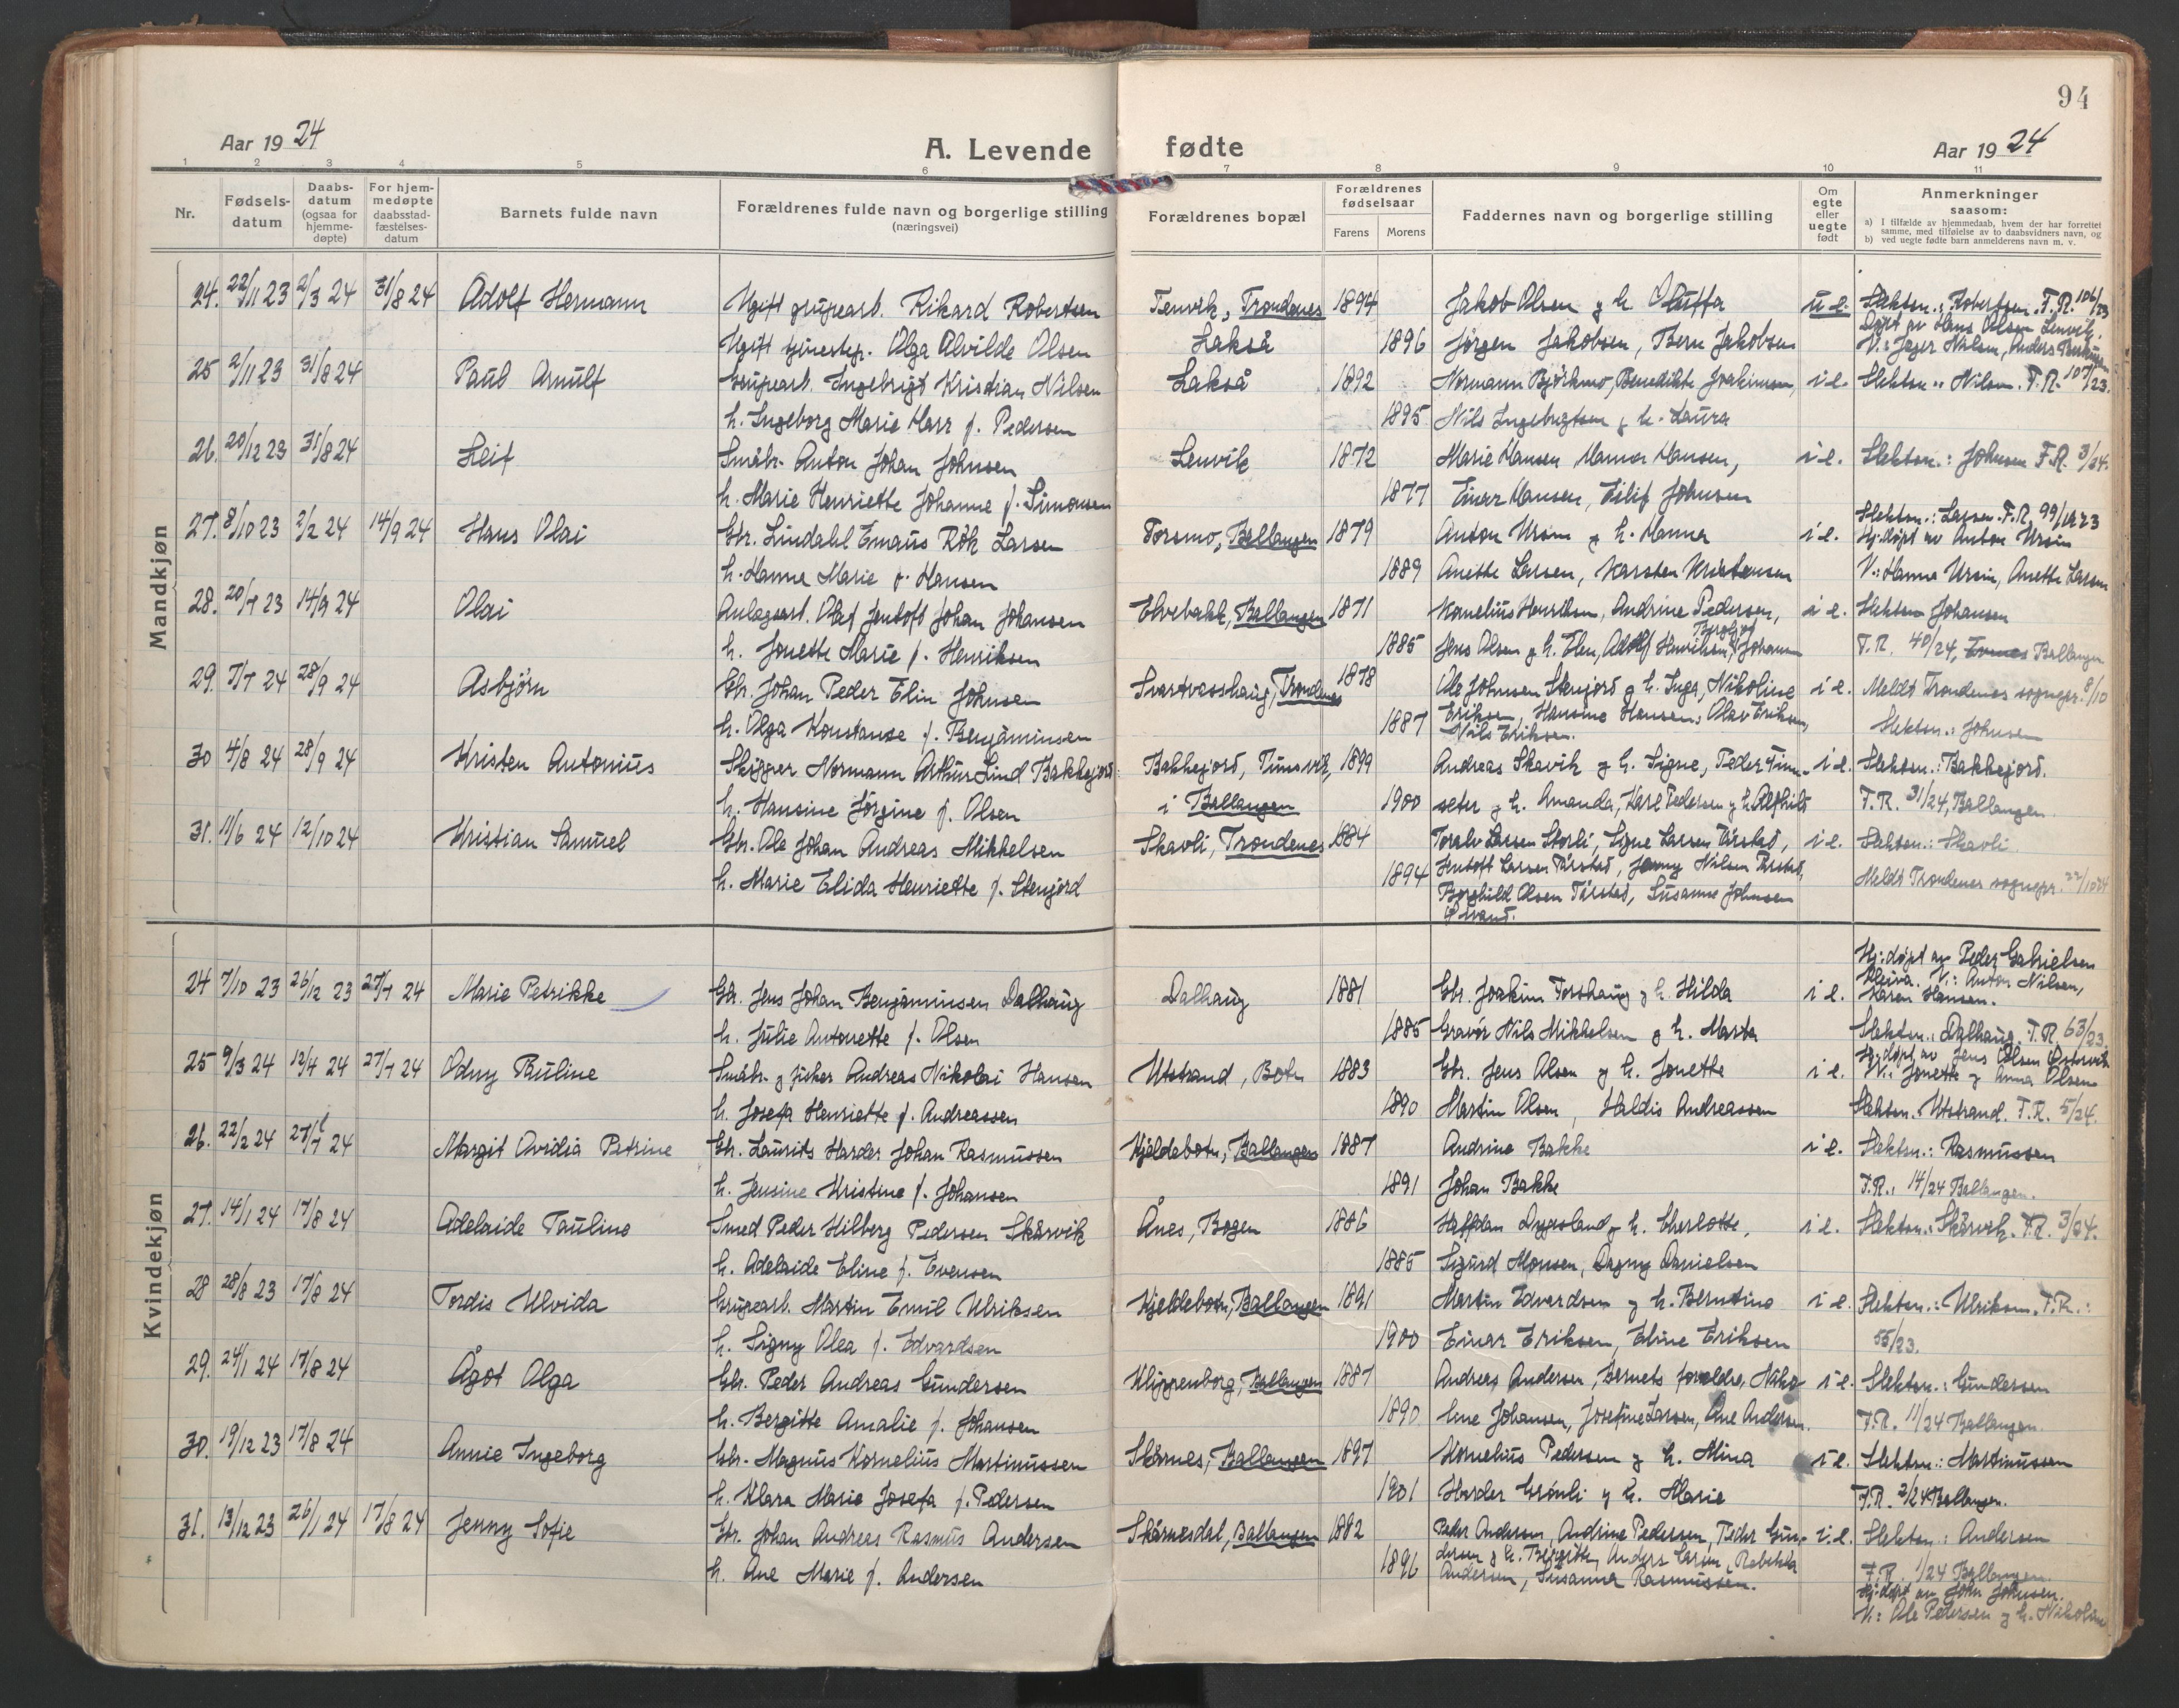 94
Aar 1924
A. Levende fødte
Aar 1924
1 2 3 4 5 6 7 8 9 10 11
Nr.
Fødsels-
datum
Daabs-
datum
(ogsaa for
hjemme-
døpte)
For hjem-
medøpte
daabsstad-
fæstelses-
datum
Barnets fulde navn
Forældrenes fulde navn og borgerlige stilling
(næringsvei)
Forældrenes bopæl
Forældrenes
fødselsaar
Farens Morens
Faddernes navn og borgerlige stilling
Om
egte
eller
uegte
født
Anmerkninger
saasom:
a) I tilfælde av hjemmedaab, hvem der har forrettet
samme, med tilføielse av to daabsvidners navn, og
b) ved uegte fødte barn anmelderens navn m. v.
Mandkjøn
24. 22/11 23 2/3 24 31/8 24 Adolf Hermann Ugift grubearb. Rikard Robertsen Tenvik, Trondenes 1894 Jakob Olsen g h. u e. Slektsn.: Robertsen. F.R. 106/23
Døpt av Hans Olsen Lenvik.
Ugift Olga Alvilde Olsen Lakså 1896 Jørgen Jakobsen, Bern Jakobsen V.: Jæger Nilsen, Anders
25 2/11 23 31/8 24 Paul Arnulf Grubearb. Ingebrigt Kristian Nilsen Lakså 1892 Normann Bjørkmo, Benedikte Joakimsen, i e. Slektsn.: Nilsen. F.R. 107/23.
h. Ingeborg Marie Marz f. Pedersen 1895 Nils Ingebrigtsen g h. Laura
26. 20/12 23 31/8 24 Leif Småbr. Anton Johan Johnsen Lenvik 1872 Marie Hansen Hanna Hansen, i e. Slektsn.: Johnsen F.R. 3/24.
h. Marie Henriette Johanne f. Simonsen 1877 Einar Hansen, Eilif Johnsen
27. 8/10 23 2/2 24 14/9 24 Hans Olai Gbr. Lindahl Emaus Rök Larsen Forsmo, Ballangen 1879 Anton Ursin g h. Hanna i e. Slektsn.: Larsen. F.R. 99/1923
Hj.døpt av Anton Ursin
h. Hanna Marie f. Hansen 1889 Anette Larsen, Karsten Kristensen V.: Hanna Ursin, Anette Larsen
28. 20/7 23 14/9 24 Olai Anlegsarb. Olaf Jentoft Johan Johansen Elvebakk, Ballangen 1871 Kornelius Henriksen, Andrine Pedersen, i e. Slektsn Johansen
h. Jonette Marie f. Henriksen 1885 Jens Olsen g h. Elen, Adolf Henriksen, Johansen F.R. 40/24, Ballangen
29. 7/7 24 28/9 24 Asbjørn Gbr. Johan Peder Elin Johnsen Svartvasshaug, Trondenes 1878 Ole Johnsen Stenjord g h. Inga, Nikoline i e. Meldt Trondenes sognepr. 8/10
h. Olga Konstanse f. Benjaminsen 1887 Eriksen, Hansine Hansen, Olav Eriksen, Slektsn.: Johnsen
Nils Eriksen.
30 4/8 24 28/9 24 Kristen Antonius Skipper Normann Arthur Lind Bakkejord Bakkejord, Tunsvik, 1899 Andreas Skavik g h. Signe, Peder Finn- i e. Slektsn.: Bakkejord.
h. Hansine Jørgine f. Olsen i Ballangen 1900 seter g h. Amanda, Karl Pedersen g h. Alfhild F.R. 31/24, Ballangen.
31. 11/6 24 12/10 24 Kristian Samuel Gbr. Ole Johan Andreas Mikkelsen Skavli, Trondenes 1884 Toralv Larsen Storli, Signe Larsen Tårstad, i e. Slektsn.: Skavli.
h. Marie Elida Henriette f. Stenjord 1894 Jentoft Larsen Tårstad, Jenny Nilsen Tårstad, Meldt Trondenes sognepr. 22/10 24
Borghild Olsen Tårstad, Susanne Johnsen
Kvindekjøn
24 7/10 23 26/12 23 27/7 24 Marie Petrikke Gbr. Jens Johan Benjaminsen Dalhaug Dalhaug 1881 Gbr. Joakim Forshaug g h. Hilda i e. Hj.døpt av Peder Gabrielsen
Kleiva. V.: Anton Nilsen,
Karen Hansen.
h. Julie Antonette f. Olsen 1885 Gravör Nils Mikkelsen g h. Marta Slektsn.: Dalhaug. F.R. 63/23.
25 9/3 24 12/4 24 27/7 24 Odny Pauline Småbr. g fisker Andreas Nikolai Hansen Utstrand, Botn 1883 Gbr. Jens Olsen g h. Jonette i e. Hj.døpt av Jens Olsen
V.: Jonette g Anna Olsen
h. Josefa Henriette f. Andreassen 1890 Martin Olsen, Haldis Andreassen Slektsn. Utstrand. F.R. 5/24.
26. 22/2 24 27/7 24 Margit Ovidia Petrine Gbr. Laurits Harder Johan Rasmussen Kjeldebotn, Ballangen 1887 Andrine Bakke i e. Slektsn.: Rasmussen
h. Jensine Kristine f. Johansen 1891 Johan Bakke F.R. 14/24 Ballangen.
27. 14/1 24 17/8 24 Adelaide Pauline Smed Peder Hilberg Pedersen Skårvik Ånes, Bogen 1886 Halfdan g h. Charlotte, i e. Slektsn.: Skårvik. F.R. 3/24.
h. Adelaide Eline f. Evensen 1885 Sigurd Monsen, Dagny Danielsen
28 28/8 23 17/8 24 Tordis Ulvida Grubearb. Martin Emil Ulriksen Kjeldebotn, Ballangen 1891 Martin Edvardsen g h. Berntine i e. Slektsn.: Ulriksen. F.R.:
h. Signy Olea f. Edvardsen 1900 Einar Eriksen, Eline Eriksen 55/23.
29. 24/1 24 17/8 24 Ågot Olga Gbr. Peder Andreas Gundersen Klippenborg, Ballangen 1887 Andreas Andersen, Barnets foreldre, Niko- i e. Slektsn.: Gundersen
h. Bergitte Amalie f. Johansen 1890 line Johansen, Josefine Larsen, Ane Andersen. F.R. 11/24 Ballangen.
30. 19/12 23 17/8 24 Annie Ingeborg Gbr. Magnus Kornelius Martinussen Skarnes, Ballangen 1897 Kornelius Pedersen g h. Mina i e. Slektsn.: Martinussen
h. Klara Marie Josefa f. Pedersen 1901 Harder Grønli g h. Marie F.R. 2/24 Ballangen.
31. 13/12 23 26/1 24 17/8 24 Jenny Sofie Gbr. Johan Andreas Rasmus Andersen Skarnesdal, Ballangen 1882 Peder Andersen, Andrine Pedersen, Peder Gun- i e. Slektsn: Andersen
h. Ane Marie f. Andersen 1896 dersen g h. Bergitte, Anders Larsen, Rebekka F.R. 1/24 Ballangen.
Andersen, Susanna Rasmussen. Hj.døpt av John Johnsen.
V.: Ole Pedersen g h. Nikoline